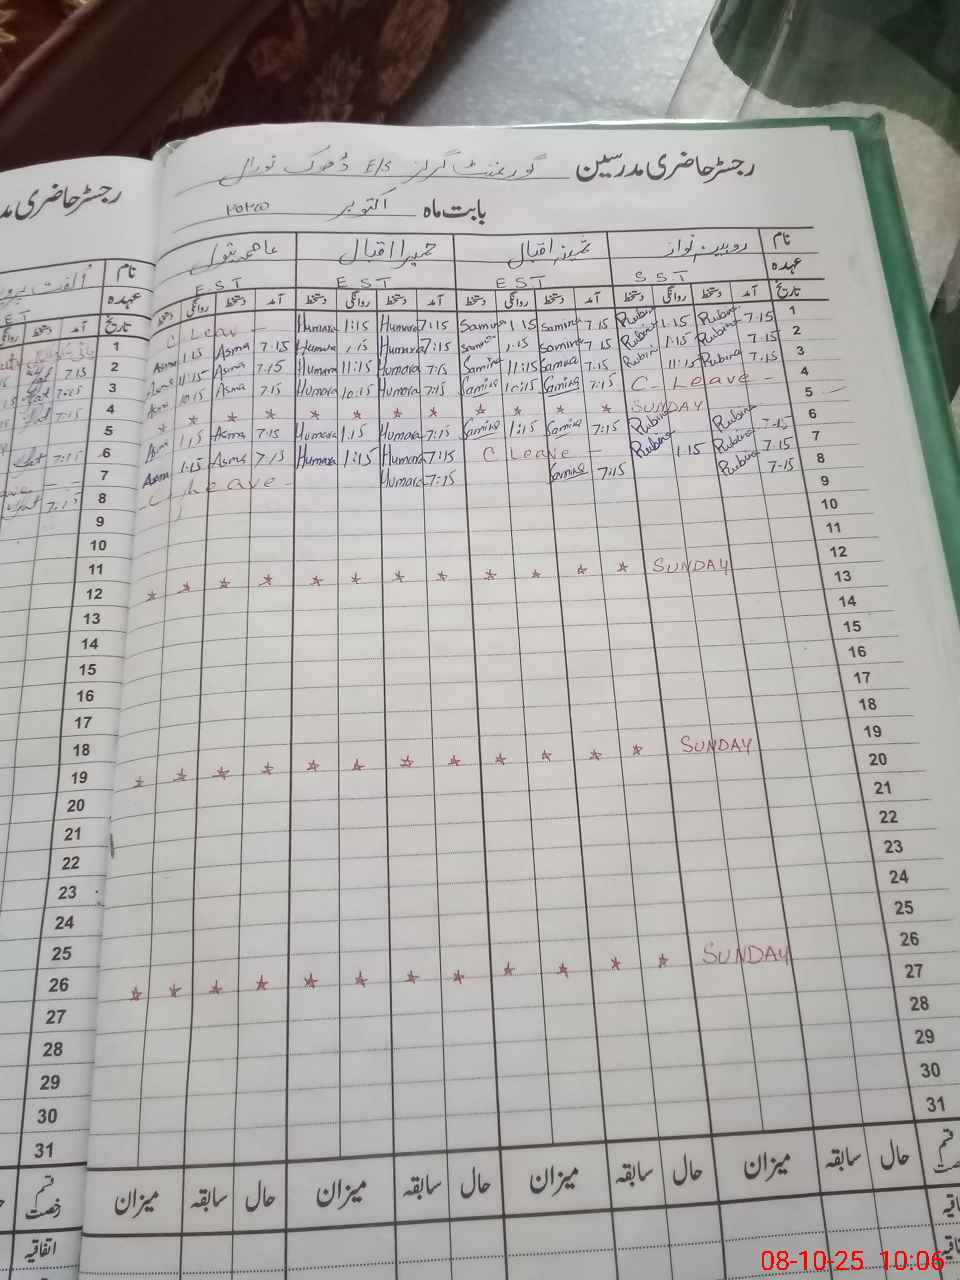 رجسٹر حاضری مدرسین گورنمنٹ گرلز E/S ڈھوک نورال
بابت ماہ اکتوبر ۲۰۲۵
نام روبینہ نواز ثمینہ اقبال حمیرا اقبال عاصمہ بتول
عہدہ SST EST EST EST
تاریخ آمد دستخط روانگی دستخط آمد دستخط روانگی دستخط آمد دستخط روانگی دستخط آمد دستخط روانگی دستخط
1 7.15 Rubina 1.15 Rubina 7.15 Samina 1.15 Samina 7:15 Humara 1:15 Humara C Leave -
2 7.15 Rubina 1.15 Rubina 7.15 Samina 1:15 Samina 7:15 Humara 1.15 Humara 7.15 Asma 1.15 Asma
3 7.15 Rubina 11:15 Rubina 7.15 Samina 11:15 Samina 7.15 Humara 11:15 Humara 7.15 Asma 11:15 Asma
4 C- Leave - 7:15 Samina 10:15 Samina 7:15 Humara 10:15 Humara 7.15 Asma 10.15 Asma
5 SUNDAY
6 7.15 Rubina Rubina 7:15 Samina 1:15 Samina 7:15 Humara 1:15 Humara 7.15 Asma 1.15 Asma
7 7.15 Rubina 1.15 Rubina C Leave - 7:15 Humara 1:15 Humara 7.15 Asma 1.15 Asma
8 7.15 Rubina 7:15 Samina 7:15 Humara C Leave -
9
10
11
12 SUNDAY
13
14
15
16
17
18
19 SUNDAY
20
21
22
23
24
25
26 SUNDAY
27
28
29
30
31
قسم رخصت حال سابقہ میزان حال سابقہ میزان حال سابقہ میزان حال سابقہ میزان
رجسٹر حاضری مد
نام الفت
عہدہ
تاریخ آمد دستخط روانگی
1
2 7.15
3 7.15
4 7.15
5
6 7:15
7
8 7:15
9
10
11
12
13
14
15
16
17
18
19
20
21
22
23
24
25
26
27
28
29
30
31
قسم رخصت
اتفاقیہ
08-10-25 10:06